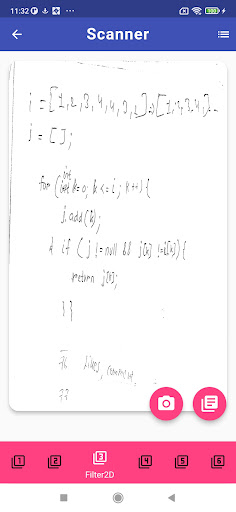 11:32
99
Scanner
i = [1,2,3,4,4,3,2] => [1,2,3,4,]
j = [];
int
for ( k=0; k<=i; k++) {
j.add(k);
if ( j != null && j[k] != i[k]) {
return j[k];
}}
Likes, comment,
}}
1 2 3 4 5 6
Filter2D